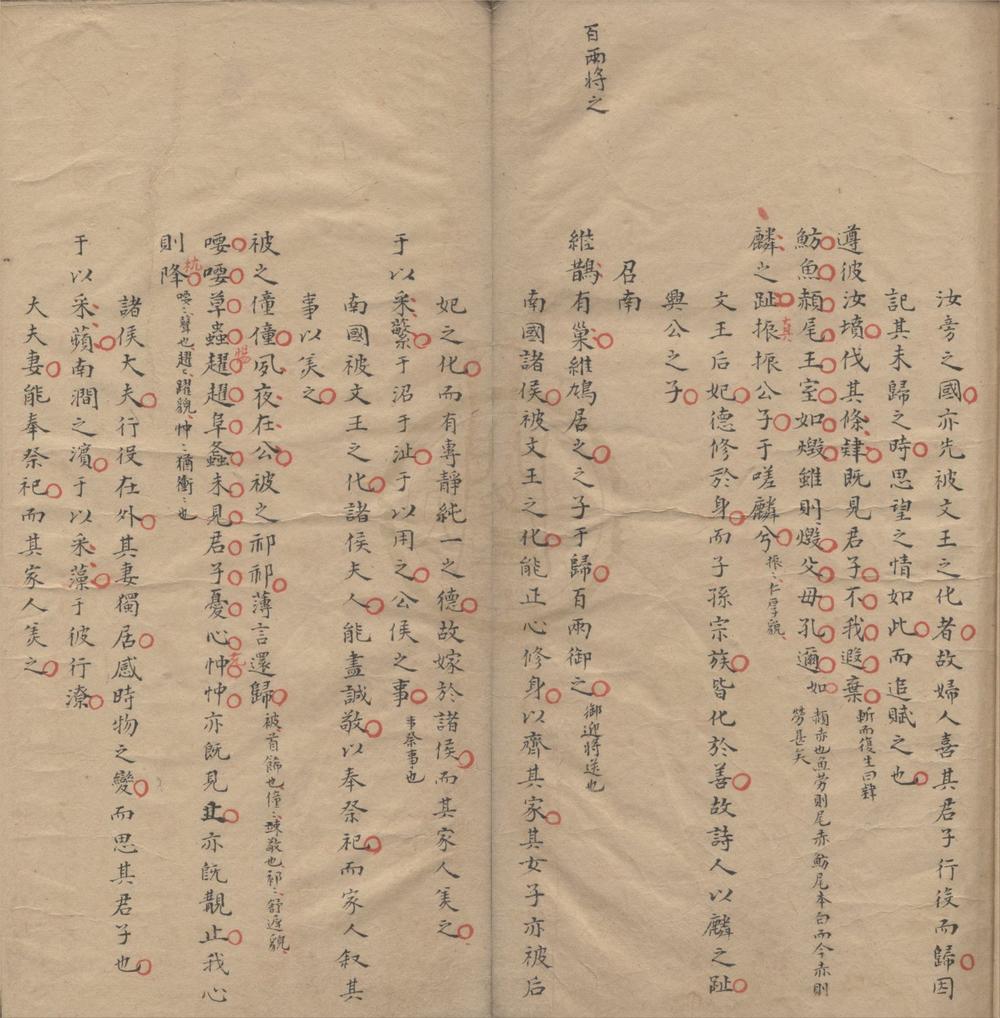 汝旁之國亦先被文王之化者故婦人喜其君子行役而歸因
記其未歸之時思望之情如此而追賦之也
遵彼汝墳伐其條肄既見君子不我遐棄斬而復生曰肄
魴魚頳尾王室如燬雖則燬父母孔邇如頳赤也魚勞則尾赤魴尾本白而今赤則
勞甚矣
麟之趾振振公子于嗟麟兮振〻仁厚貌
真
文王后妃德修於身而子孫宗族皆化於善故詩人以麟之趾
興公之子
召南
百兩將之
維鵲有巢維鳩居之之子于歸百兩御之御迎將送也
南國諸侯被文王之化能正心修身以齊其家其女子亦被后
妃之化而有專靜純一之德故嫁於諸侯而其家人美之
于以采蘩于沼于沚于以用之公侯之事事祭事也
南國被文王之化諸侯夫人能盡誠敬以奉祭祀而家人叙其
事以美之
被之僮僮夙夜在公被之祁祁薄言還歸被首飾也僮〻竦敬也祁〻舒遲貌
喓喓草蟲趯趯阜螽未見君子憂心忡忡亦既見止亦既覯止我心
則降喓〻聲也趯〻躍貌忡〻猶衝〻也
杭
諸侯大夫行役在外其妻獨居感時物之變而思其君子也
于以采蘋南澗之濱于以采藻于彼行潦
大夫妻能奉祭祀而其家人美之